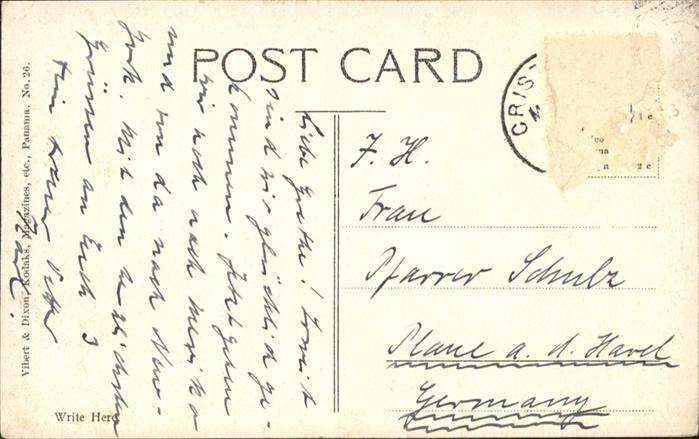 POST CARD
Vibert & Dixon, Kodaks, Magazines, etc., Panama. No. 26.
Write Here
CRIS
Liebe Grete! Soweit
sind wir glücklich ge-
kommen. Jetzt gehen
wir noch nach Mexiko
und von da nach New-
York. Mit den herzlichsten
Grüssen an Euch 3
Dein treuer Vetter
F. H.
Frau
Pfarrer Schulz
Plaue a. d. Havel
Germany